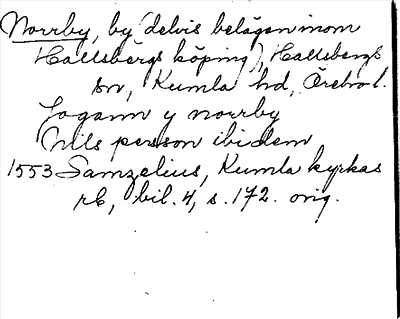 Norrby, by (delvis belägen inom
Hallsbergs köping), Hallsbergs
sn, Kumla hd, Örebro l.
Jogann y norrby
Nils persson ibidem
1553 Samzelius, Kumla kyrkas
rb, bil. 4, s. 172. orig.